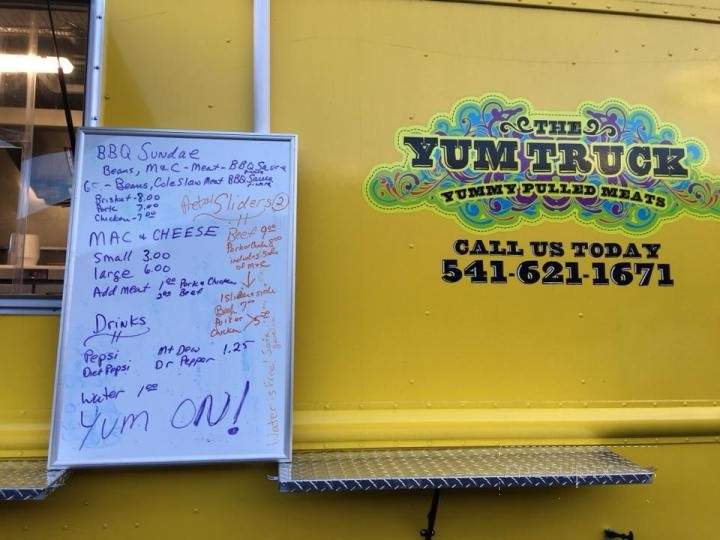 BBQ Sundae
Beans, M&C - Meat - BBQ Sauce
6 - Beans, Coleslaw Meat BBQ Sauce
Brisket - 8.00
Pork 7.00
Chicken - 7.00
Pretzel Sliders (2)
Beef 9.00
Pork or Chicken 8.00
includes side
of M&C
1 Slider & side
Beef 7.00
Pork or
Chicken
MAC & CHEESE
Small 3.00
large 6.00
Add Meat 1.00 Pork & Chicken
2.00 Beef
Drinks
Pepsi Mt Dew 1.25
Diet Pepsi Dr Pepper
Water 1.00
YUM ON!
Water is Free!
THE
YUM TRUCK
YUMMY PULLED MEATS
CALL US TODAY
541-621-1671